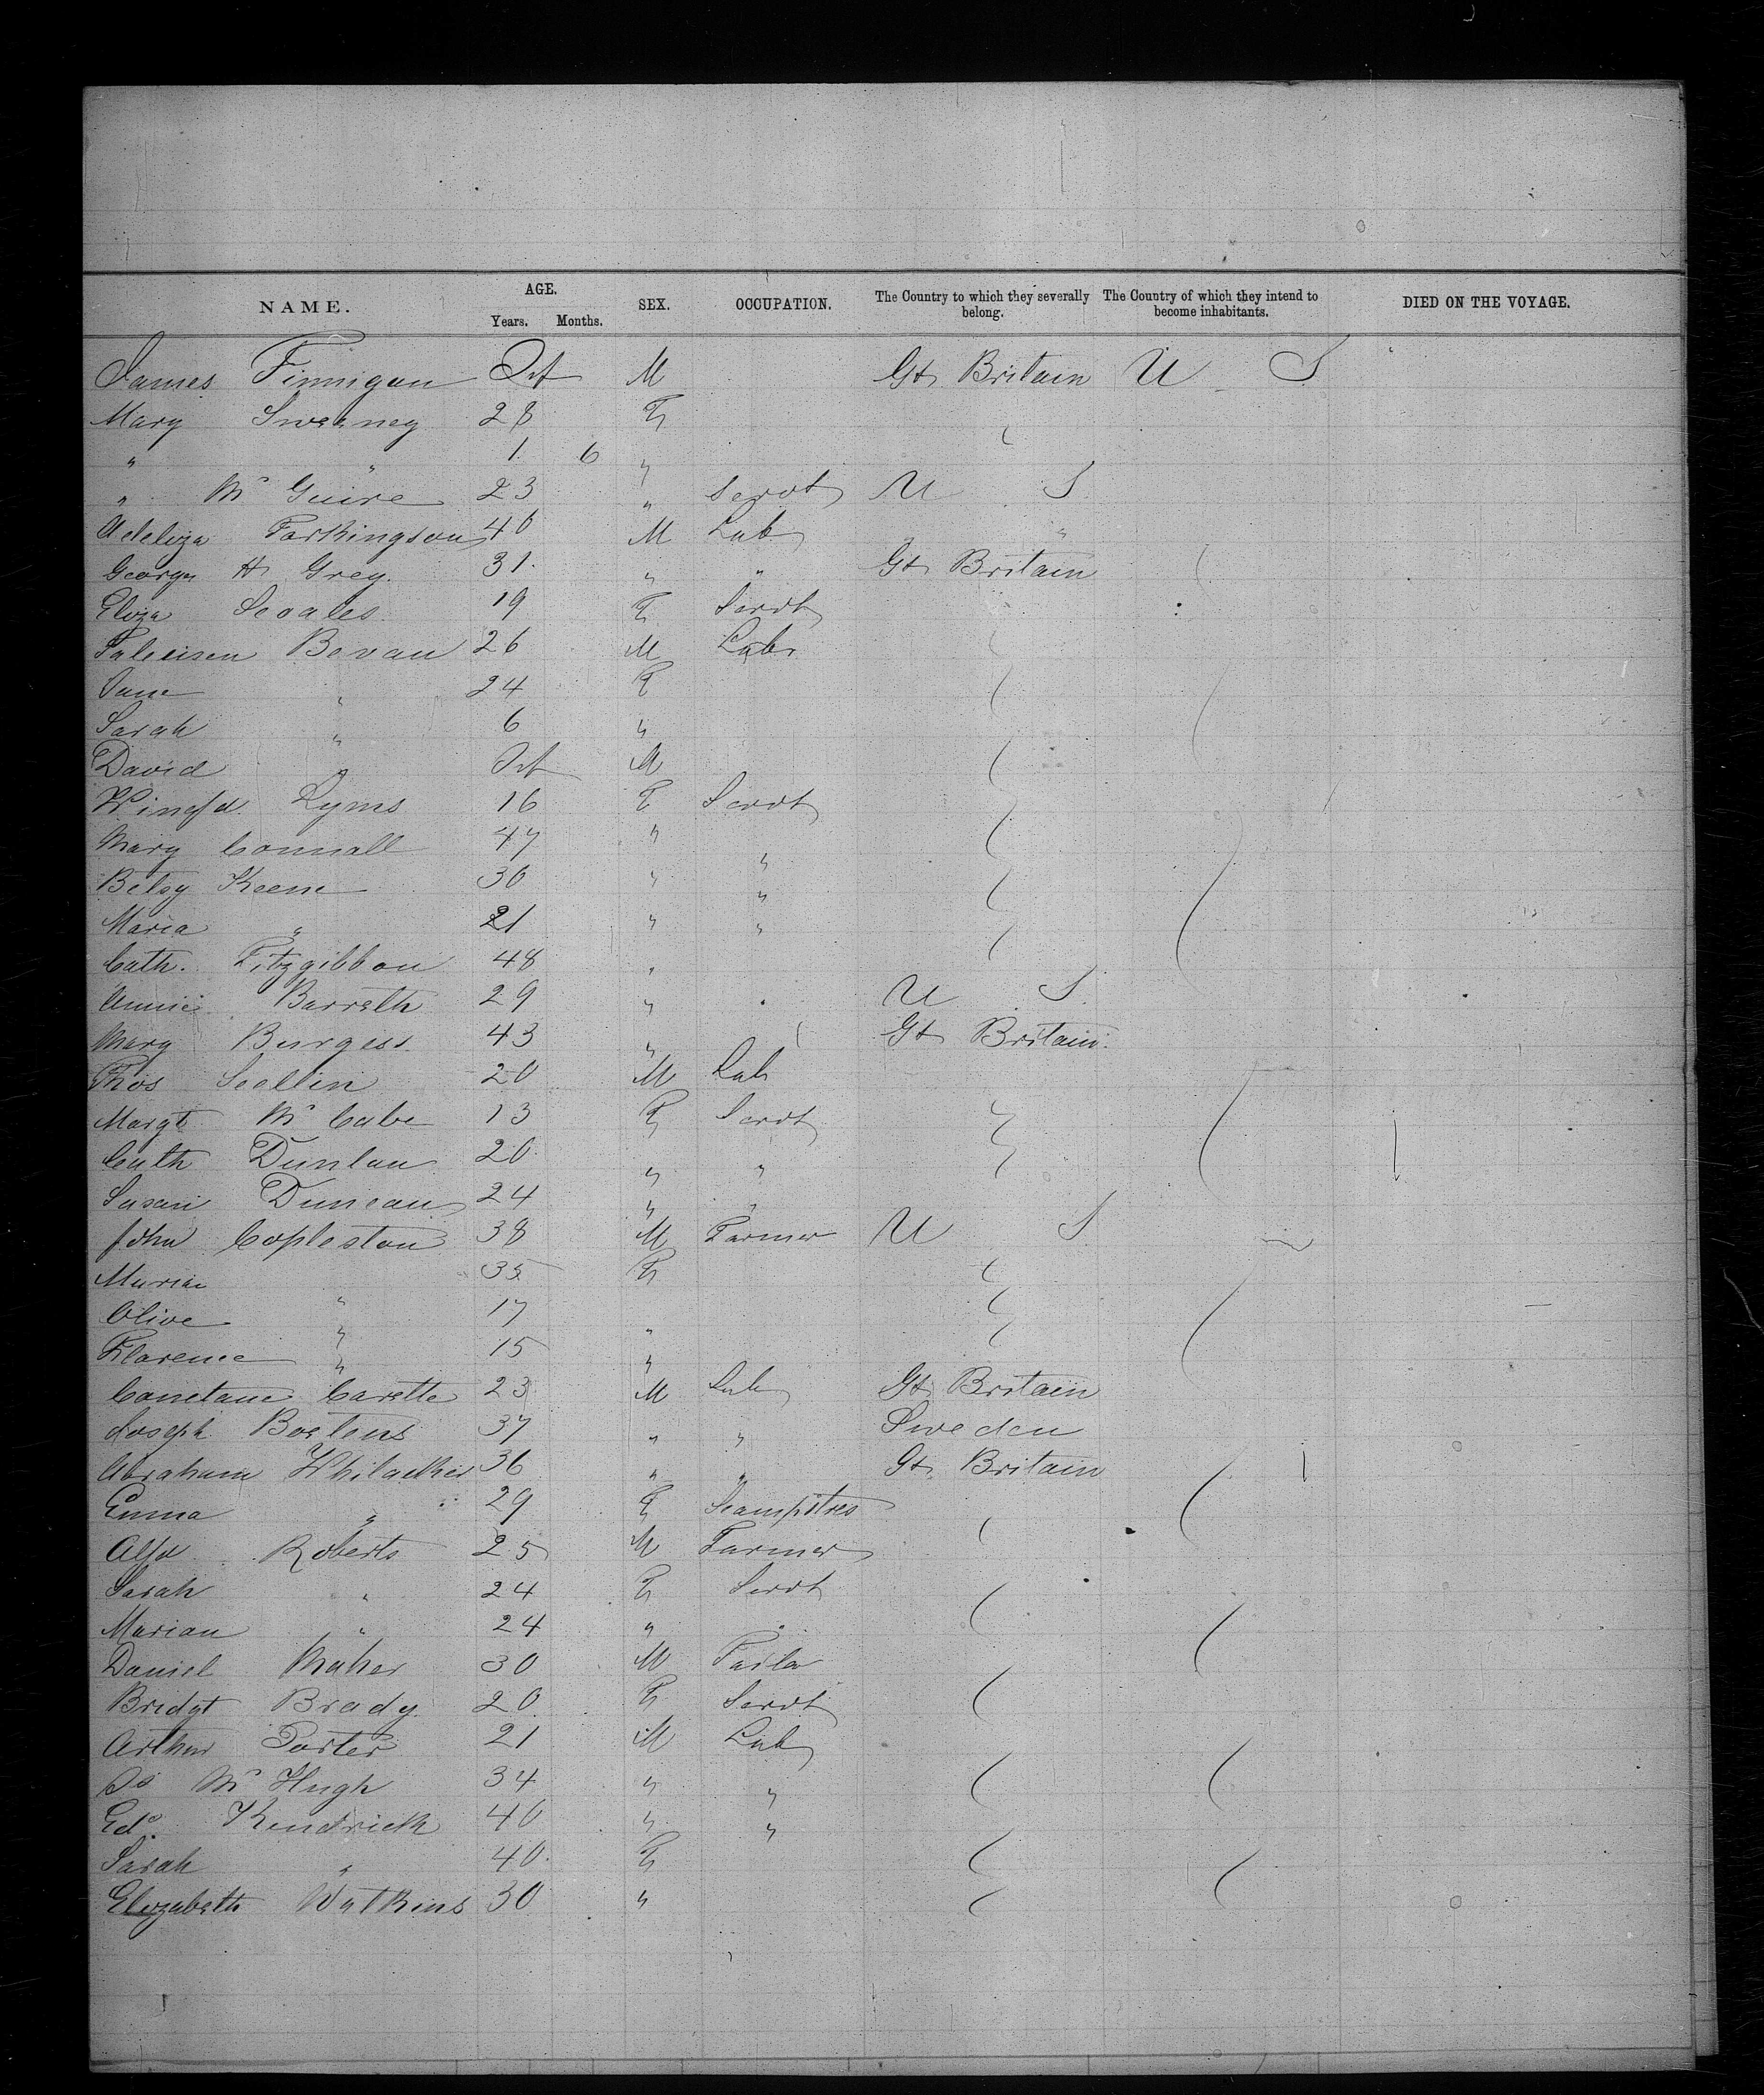 NAME. AGE. SEX. OCCUPATION. The Country to which they severally belong. The Country of which they intend to become inhabitants. DIED ON THE VOYAGE.
Years. Months.
James Finnigan Inf M Gt Britain U S
Mary Sweeney 28 F
" " 1 6 "
" Mc Guire 23 " Servt U S
Adeliza Parkingson 40 M Lab " "
George H Grey. 31. " " Gt Britain
Eliza Scoales 19 F Servt
Bevan 26 M Lab
Jane " 24 F
Sarah " 6 "
David " Inf M
Winefd. Lyms 16 F Servt
Mary Connall 47 " "
Betsy Keene 30 " "
Maria " 21 " "
Cath. Fitzgibbon 48 "
Annie Barrett 29 " " U S
Mary Burgess 43 " Gt Britain
Thos Scellin 20 M Lab
Margt Mc Cabe 13 F Servt
Cath Dunlan 20 " "
Susan Duncan 24 " "
John Copleston 38 M Farmer U S
Maria " 35 F
Olive " 17 "
Florence " 15 "
Carette 23 M Lab Gt Britain
Joseph Bostens 37 " " Sweden
Abraham 36 " " Gt Britain
Emma " 29 F Seampstres
Alfd Roberts 25 M Farmer
Sarah " 24 F Servt
Marian " 24 " "
Daniel Maher 30 M Tailor
Bridgt Brady 20 F Servt
Arthur Porter 21 M Lab
Mc Hugh 34 " "
Edd. Kendrick 40 " "
Sarah " 40 F
Elizabeth Watkins 30 "